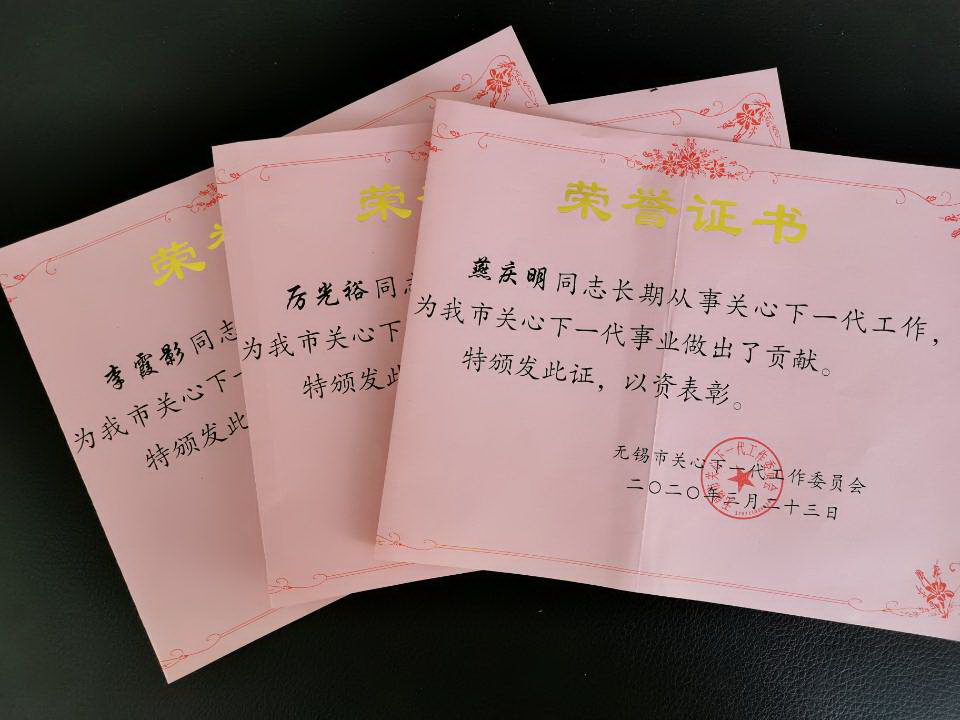 荣誉证书
燕庆明同志长期从事关心下一代工作，
为我市关心下一代事业做出了贡献。
特颁发此证，以资表彰。
无锡市关心下一代工作委员会
二〇二〇年三月二十三日
无锡市关心下一代工作委员会
荣
厉光裕同志
为我市关心下
特颁发此
荣誉
李霞影同志
为我市关心下一
特颁发此